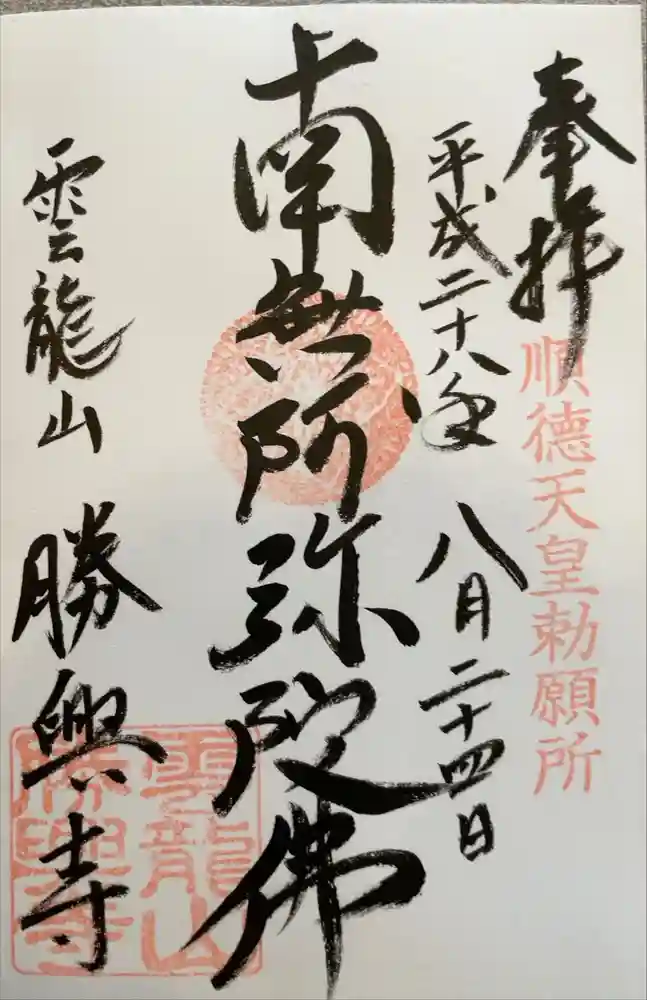 奉拝
順德天皇勅願所
平成二十八年
八月二十四日
南無阿弥陀佛
雲龍山
勝興寺
雲龍山
勝興寺